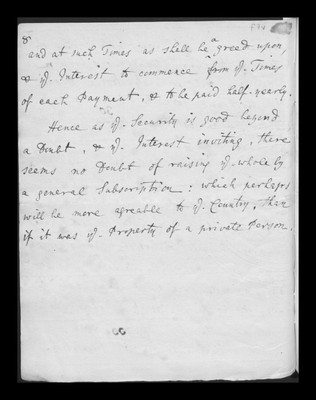 8
and at such Times as shall be agreed upon,
& ye. Interest to commence from ye. Times
of each Payment, & to be paid half-yearly.
Hence as ye. Security is good beyond
a Doubt, & ye. Interest inviting, there
seems no Doubt of raising ye. whole by
a general Subscription: which perhaps
will be more agreable to ye. Country, than
if it was ye. Property of a private Person.